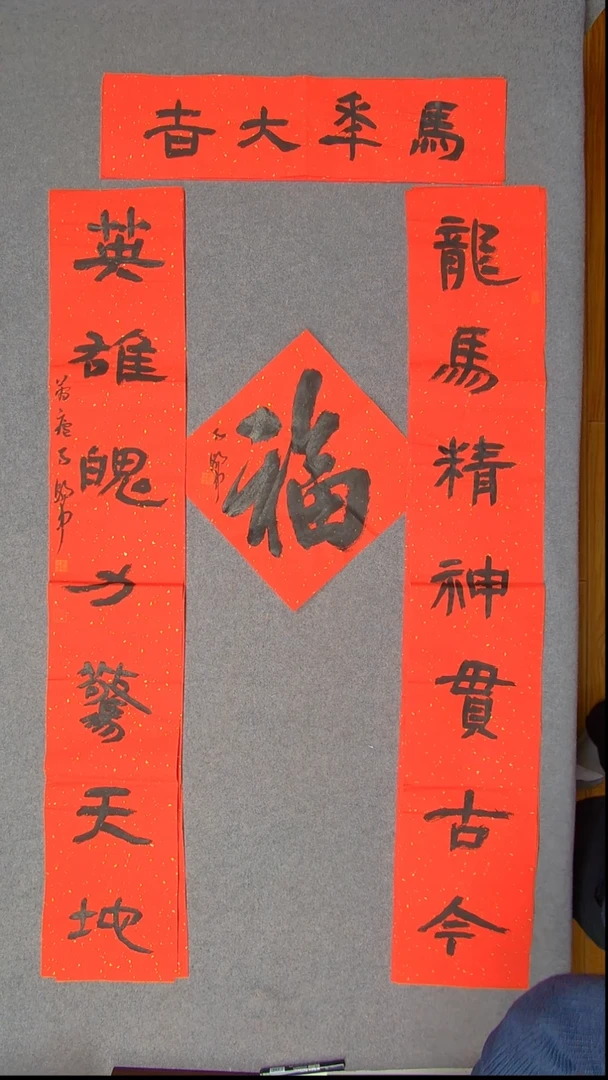 馬年大吉
龍馬精神貫古今
英雄魄力驚天地
福